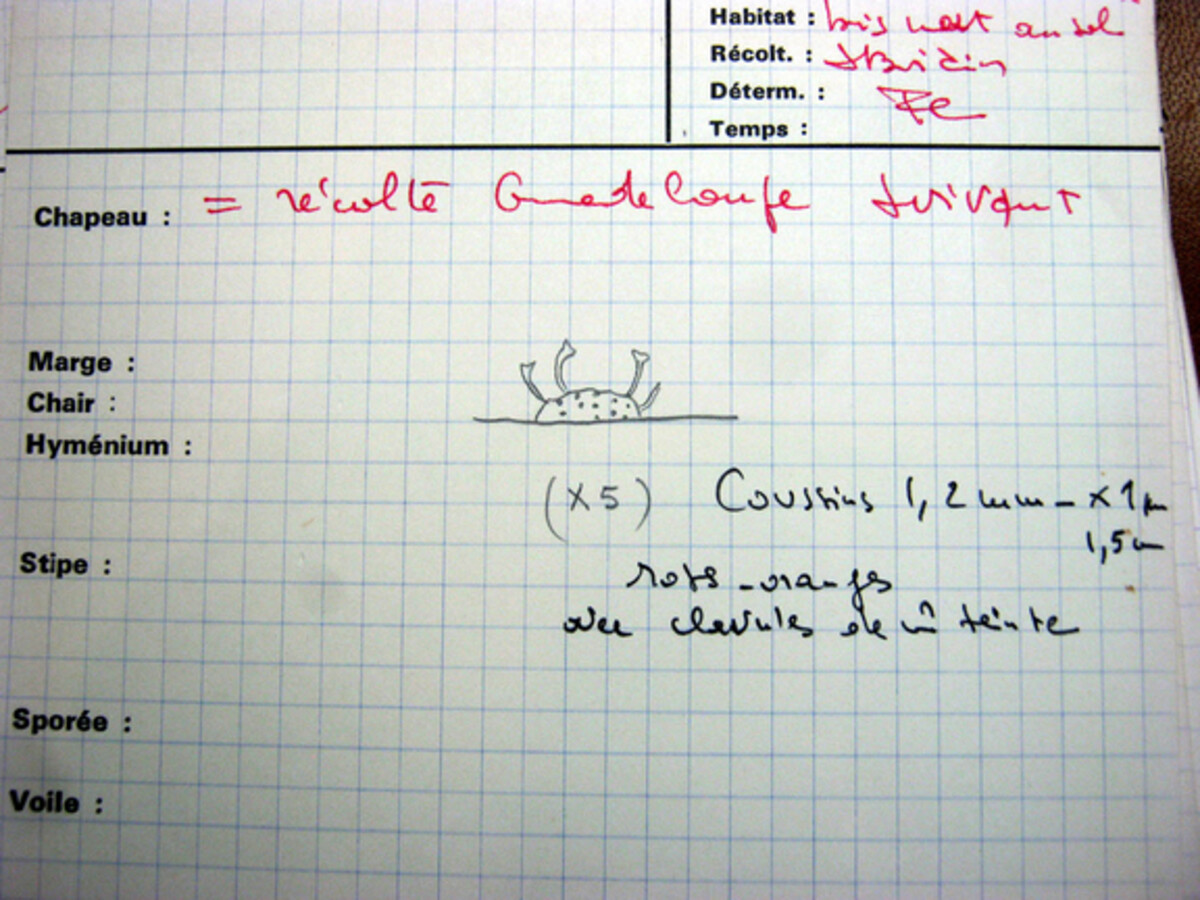 Habitat : bois mort au sol
Récolt. :
Déterm. :
Temps :
Chapeau : = récolte Guadeloupe suivant
Marge :
Chair :
Hyménium :
(X5) Coussins 1,2 mm - x 1
1,5
Stipe :
rose-orangés
avec clavules de m̂ teinte
Sporée :
Voile :